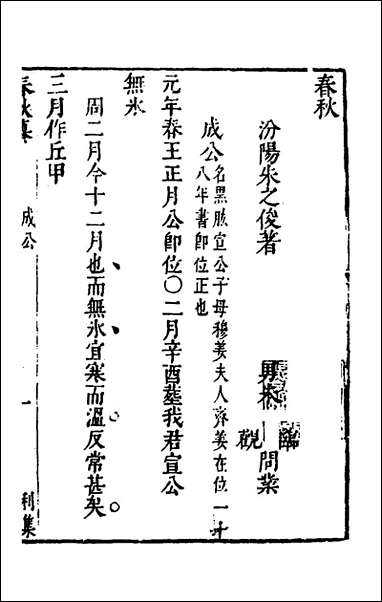 春秋
汾陽朱之俊著
男 臨觀 問業
成公名黑肱宣公子母穆姜夫人齊姜在位一十
八年書即位正也
元年春王正月公即位〇二月辛酉葬我君宣公
無氷
周二月今十二月也而無氷宜寒而溫反常甚矣
三月作丘甲
春秋纂
成公
一
利集